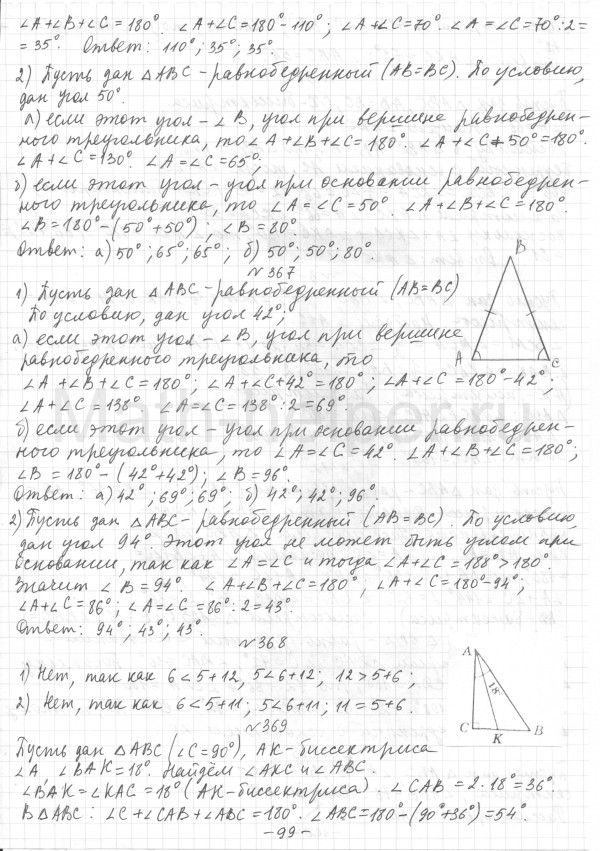 ∠A+∠B+∠C=180°. ∠A+∠C=180°-110°; ∠A+∠C=70°. ∠A=∠C=70°:2=
=35°. Ответ: 110°; 35°; 35°.
2) Пусть дан △ABC - равнобедренный (AB=BC). По условию,
дан угол 50°.
а) если этот угол - ∠B, угол при вершине равнобедрен-
ного треугольника, то ∠A+∠B+∠C=180°. ∠A+∠C+50°=180°.
∠A+∠C=130°. ∠A=∠C=65°;
б) если этот угол - угол при основании равнобедрен-
ного треугольника, то ∠A=∠C=50°. ∠A+∠B+∠C=180°.
∠B=180°-(50°+50°); ∠B=80°.
Ответ: а) 50°; 65°; 65°; б) 50°; 50°; 80°.
№367
1) Пусть дан △ABC - равнобедренный (AB=BC)
По условию, дан угол 42°;
а) если этот угол - ∠B, угол при вершине
равнобедренного треугольника, то
∠A+∠B+∠C=180°; ∠A+∠C+42°=180°; ∠A+∠C=180°-42°;
∠A+∠C=138° ∠A=∠C=138°:2=69°.
б) если этот угол - угол при основании равнобедрен-
ного треугольника, то ∠A=∠C=42°. ∠A+∠B+∠C=180°;
∠B=180°-(42°+42°); ∠B=96°.
Ответ: а) 42°; 69°; 69°; б) 42°; 42°; 96°.
2) Пусть дан △ABC - равнобедренный (AB=BC). По условию,
дан угол 94°. Этот угол не может быть углом при
основании, так как ∠A=∠C и тогда ∠A+∠C=188°>180°.
Значит ∠B=94°. ∠A+∠B+∠C=180°, ∠A+∠C=180°-94°;
∠A+∠C=86°; ∠A=∠C=86°:2=43°.
Ответ: 94°; 43°; 43°.
B
A
C
№368
1) Нет, так как 6<5+12, 5<6+12; 12>5+6;
2) Нет, так как 6<5+11; 5<6+11; 11=5+6.
№369
Пусть дан △ABC (∠C=90°), AK-биссектриса
∠A, ∠BAK=18°. Найдём ∠AKC и ∠ABC.
∠BAK=∠KAC=18° (AK-биссектриса). ∠CAB=2·18°=36°.
В △ABC: ∠C+∠CAB+∠ABC=180°. ∠ABC=180°-(90°+36°)=54°.
A
18°
C
K
B
-99-